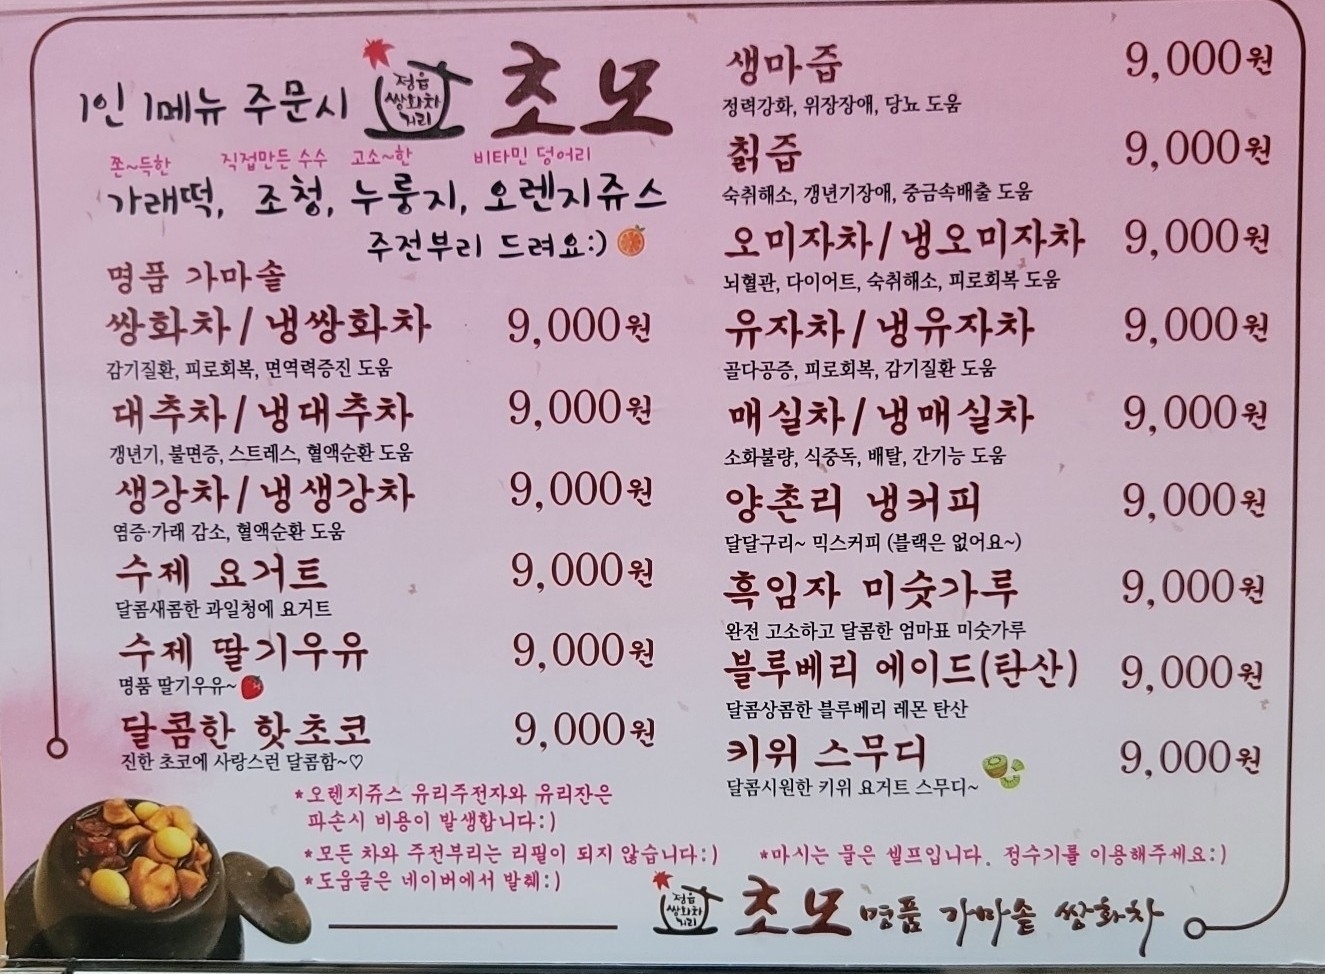 1인 1메뉴 주문시
정읍
쌍화차
거리
초모
쫀~득한 직접만든 수수 고소~한 비타민 덩어리
가래떡, 조청, 누룽지, 오렌지쥬스
주전부리 드려요:)
명품 가마솥
쌍화차/냉쌍화차 9,000원
감기질환, 피로회복, 면역력증진 도움
대추차/냉대추차 9,000원
갱년기, 불면증, 스트레스, 혈액순환 도움
생강차/냉생강차 9,000원
염증·가래 감소, 혈액순환 도움
수제 요거트 9,000원
달콤새콤한 과일청에 요거트
수제 딸기우유 9,000원
명품 딸기우유~
달콤한 핫초코 9,000원
진한 초코에 사랑스런 달콤함~♡
생마즙 9,000원
정력강화, 위장장애, 당뇨 도움
칡즙 9,000원
숙취해소, 갱년기장애, 중금속배출 도움
오미자차/냉오미자차 9,000원
뇌혈관, 다이어트, 숙취해소, 피로회복 도움
유자차/냉유자차 9,000원
골다공증, 피로회복, 감기질환 도움
매실차/냉매실차 9,000원
소화불량, 식중독, 배탈, 간기능 도움
양촌리 냉커피 9,000원
달달구리~ 믹스커피 (블랙은 없어요~)
흑임자 미숫가루 9,000원
완전 고소하고 달콤한 엄마표 미숫가루
블루베리 에이드(탄산) 9,000원
달콤상콤한 블루베리 레몬 탄산
키위 스무디 9,000원
달콤시원한 키위 요거트 스무디~
*오렌지쥬스 유리주전자와 유리잔은
파손시 비용이 발생합니다:)
*모든 차와 주전부리는 리필이 되지 않습니다:)
*도움글은 네이버에서 발췌:)
*마시는 물은 셀프입니다. 정수기를 이용해주세요:)
정읍
쌍화차
거리
초모 명품 가마솥 쌍화차